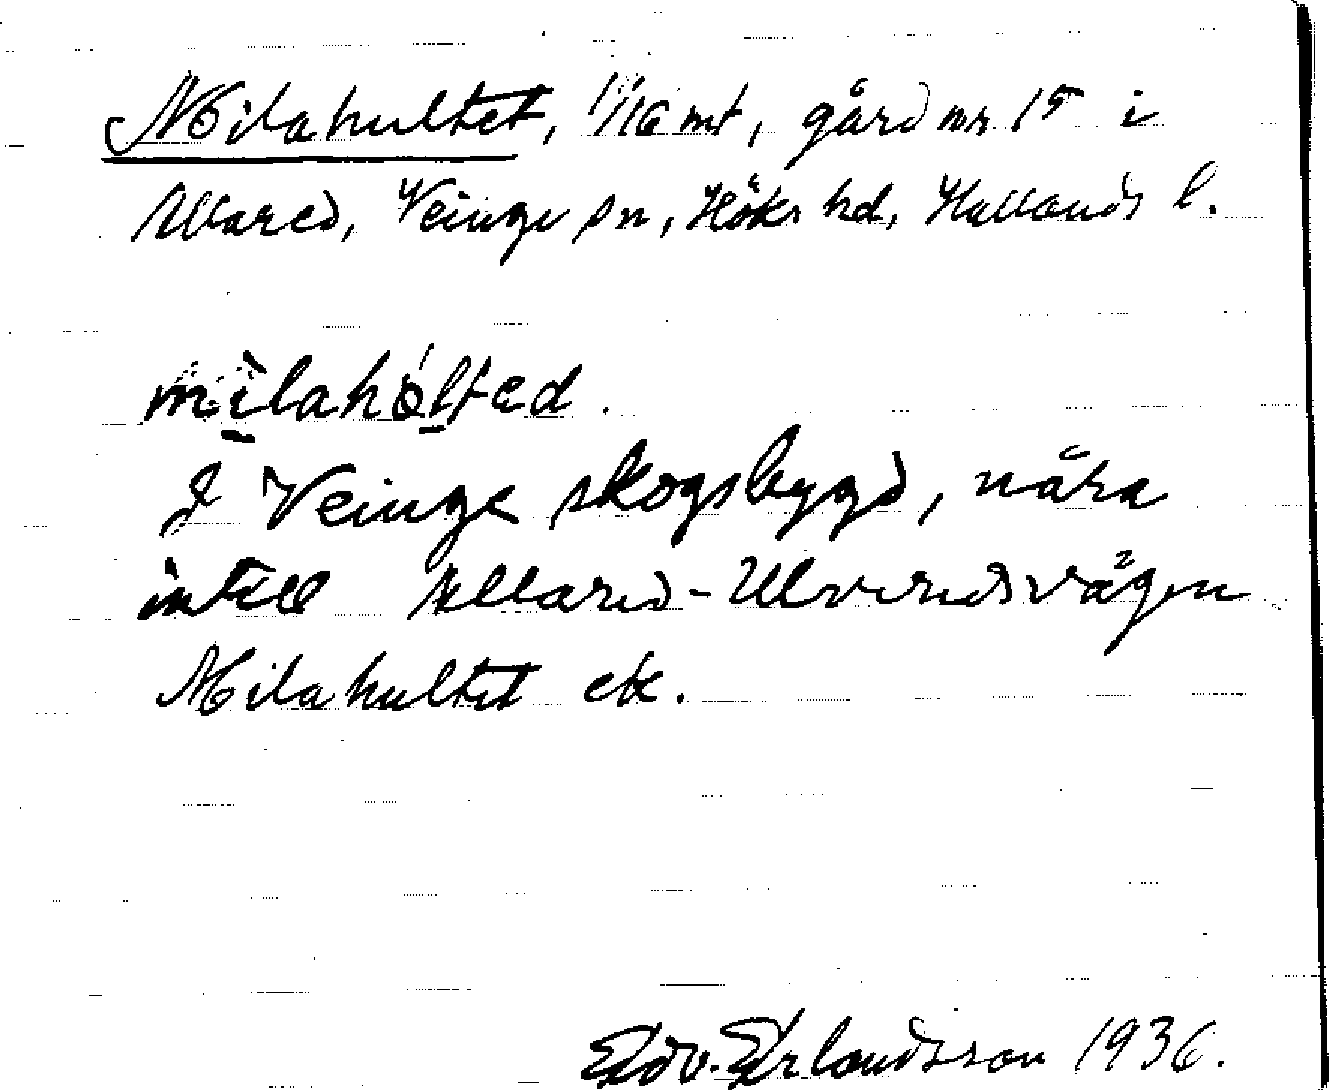 Milahultet, 1/16 mt, gård nr 15 i
Allared, Veinge sn, Höks hd, Hallands l.
mìlahól̠ted.
I Veinge skogsbygd, nära
intill Allared-Ulveredsvägen
Milahultet etc.
Edv. Erlandsson 1936.